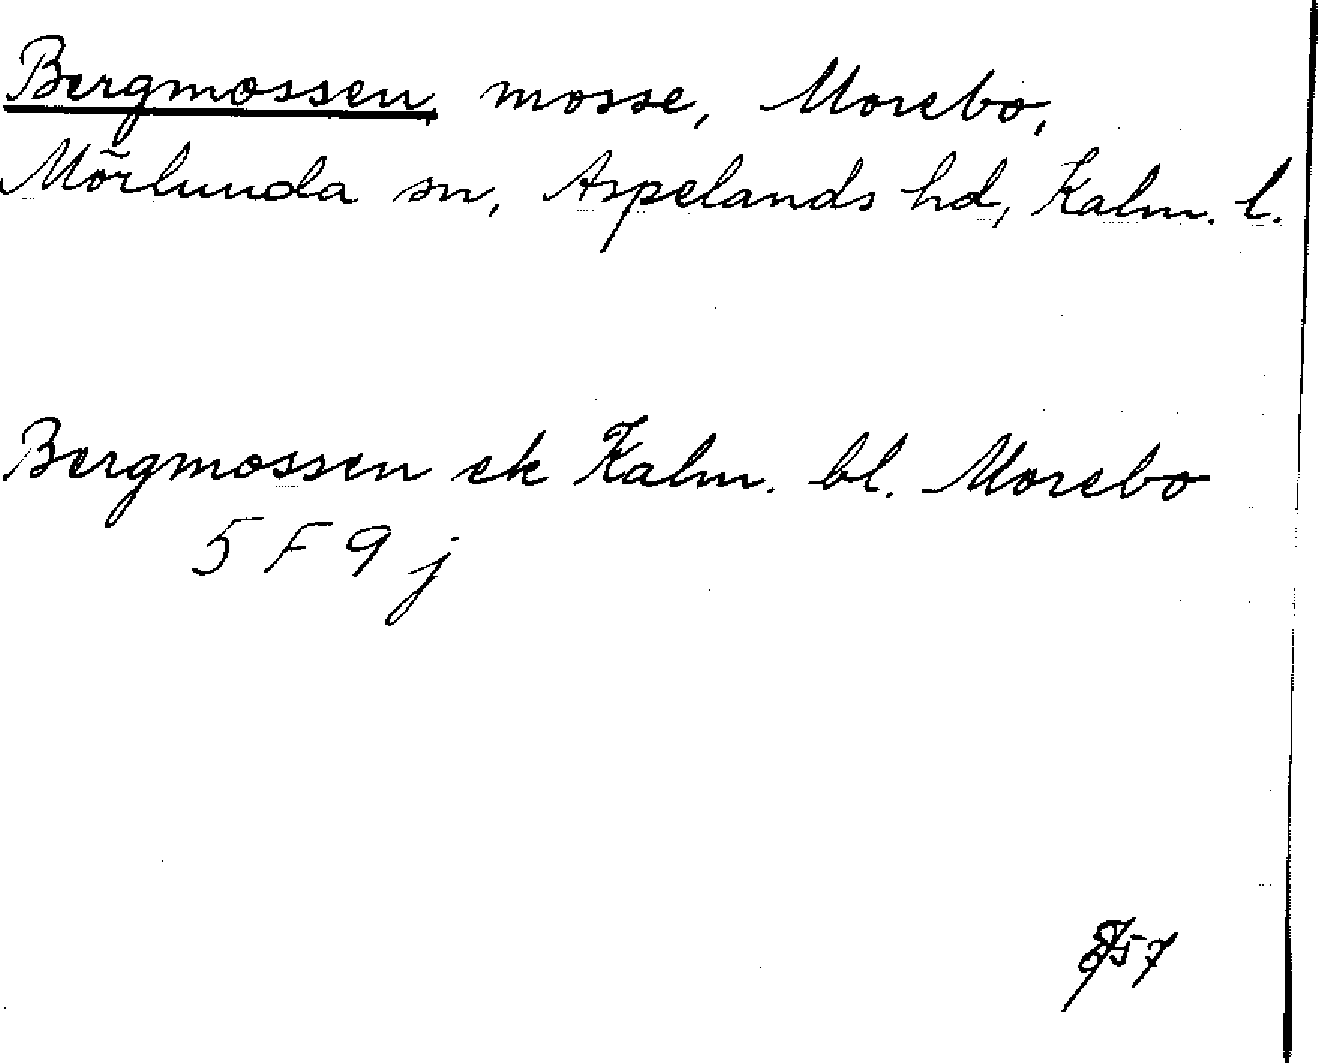 Bergmossen, mosse, Morebo,
Mörlunda sn, Aspelands hd, Kalm. l.
Bergmossen ek Kalm. bl. Morebo
5 F 9 j